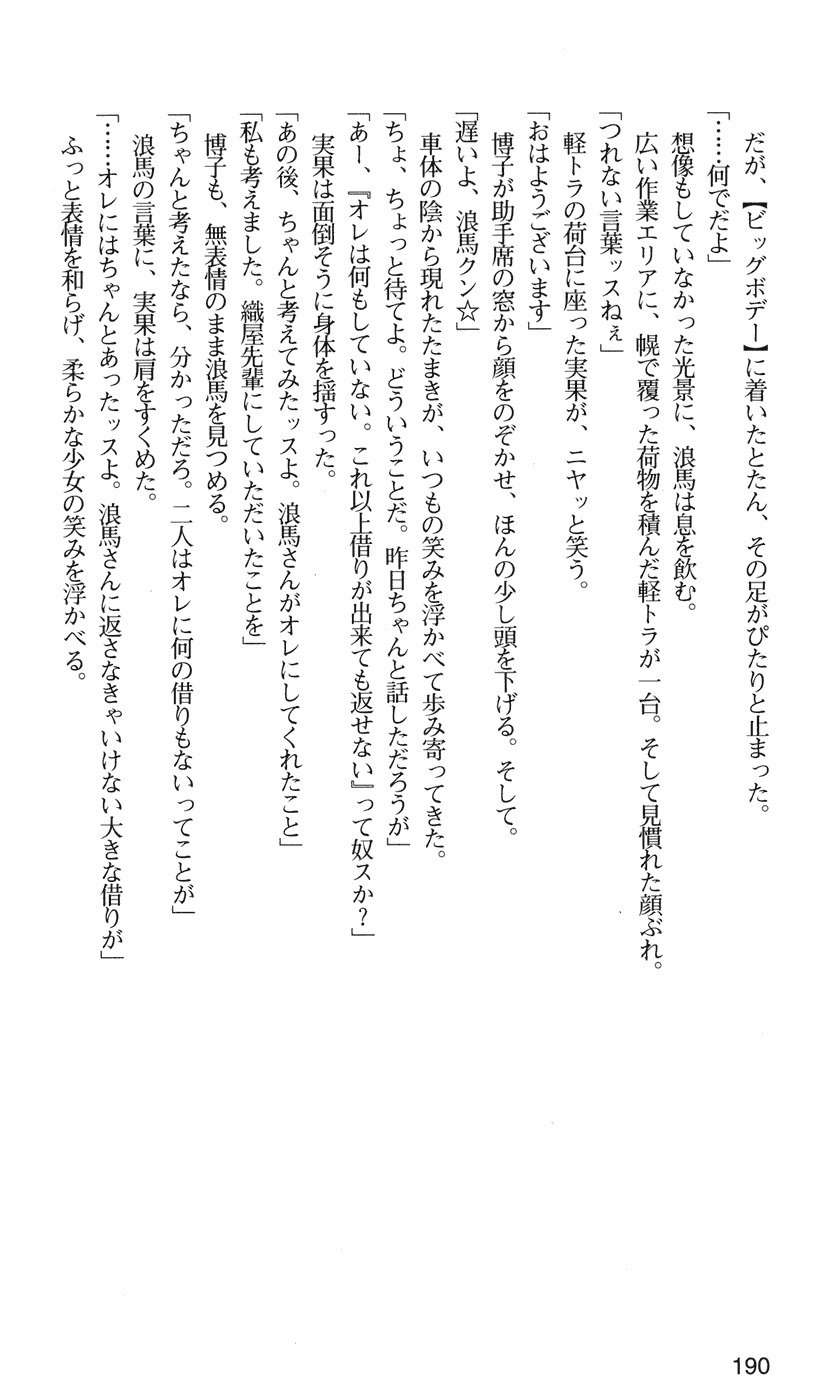 だが、【ビッグボデー】に着いたとたん、その足がぴたりと止まった。
「……何でだよ」
想像もしていなかった光景に、浪馬は息を飲む。
広い作業エリアに、幌で覆った荷物を積んだ軽トラが一台。そして見慣れた顔ぶれ。
「つれない言葉ッスねぇ」
軽トラの荷台に座った実果が、ニヤッと笑う。
「おはようございます」
博子が助手席の窓から顔をのぞかせ、ほんの少し頭を下げる。そして。
「遅いよ、浪馬クン☆」
車体の陰から現れたたまきが、いつもの笑みを浮かべて歩み寄ってきた。
「ちょ、ちょっと待てよ。どういうことだ。昨日ちゃんと話しただろうが」
「あー、『オレは何もしていない。これ以上借りが出来ても返せない』って奴スか？」
実果は面倒そうに身体を揺すった。
「あの後、ちゃんと考えてみたッスよ。浪馬さんがオレにしてくれたこと」
「私も考えました。織屋先輩にしていただいたことを」
博子も、無表情のまま浪馬を見つめる。
「ちゃんと考えたなら、分かっただろ。二人はオレに何の借りもないってことが」
浪馬の言葉に、実果は肩をすくめた。
「……オレにはちゃんとあったッスよ。浪馬さんに返さなきゃいけない大きな借りが」
ふっと表情を和らげ、柔らかな少女の笑みを浮かべる。
190